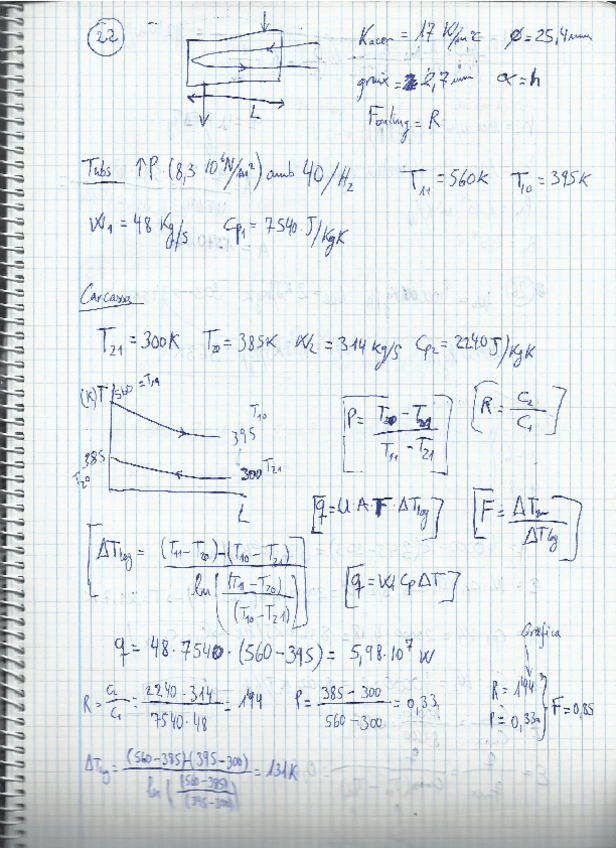 22
Kacer = 17 K/m°C ø = 25,4 mm
gruix = 2,7 mm α = h
Fouling = R
L
Tubs ↑P (8,3·10⁶ N/m²) amb 40/H₂ T₁₁ = 560K T₁₀ = 395K
W₁ = 48 Kg/s Cp₁ = 7540 J/KgK
Carcassa
T₂₁ = 300K T₂₀ = 385K W₂ = 314 kg/s Cp₂ = 2240 J/KgK
(K) T 560 = T₁₁
T₁₀
395
385
T₂₀
300 T₂₁
L
[P = (T₂₀ - T₂₁)/(T₁₁ - T₂₁)] [R = C₂/C₁]
[q = U·A·F·ΔTlog] [F = ΔTm/ΔTlog]
[ΔTlog = ((T₁₁ - T₂₀) - (T₁₀ - T₂₁))/ln((T₁₁ - T₂₀)/(T₁₀ - T₂₁))]
[q = W Cp ΔT]
q = 48·7540·(560 - 395) = 5,98·10⁷ W
Gràfica
R = C₂/C₁ = (2240·314)/(7540·48) = 1'94 P = (385 - 300)/(560 - 300) = 0,33
R = 1'94
P = 0,33 } F = 0,85
ΔTlg = ((560 - 385) - (395 - 300))/ln((560 - 385)/(395 - 300)) = 131K